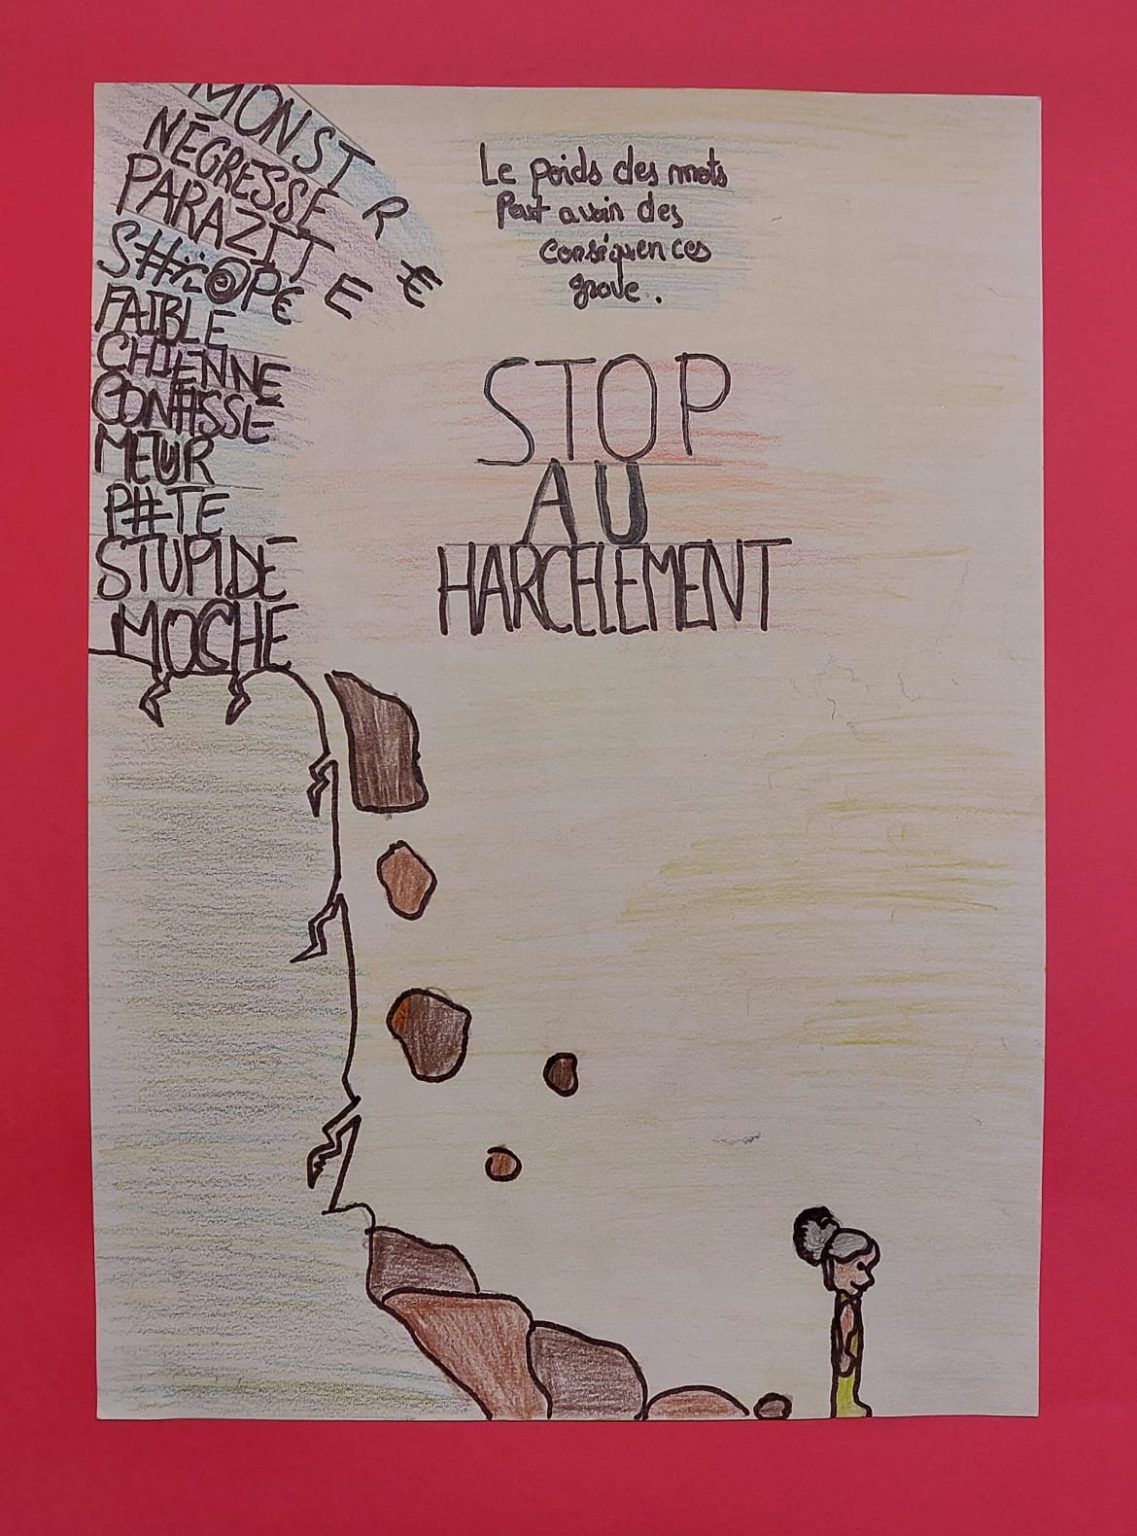 MONSTR€
NÉGRESSE
PARAZITE
S#L@P€
FAIBLE
CHIENNE
CONASSE
MEUR
P#TE
STUPIDE
MOCHE
Le poids des mots
Peut avoir des
conséquences
grave.
STOP
AU
HARCELEMENT